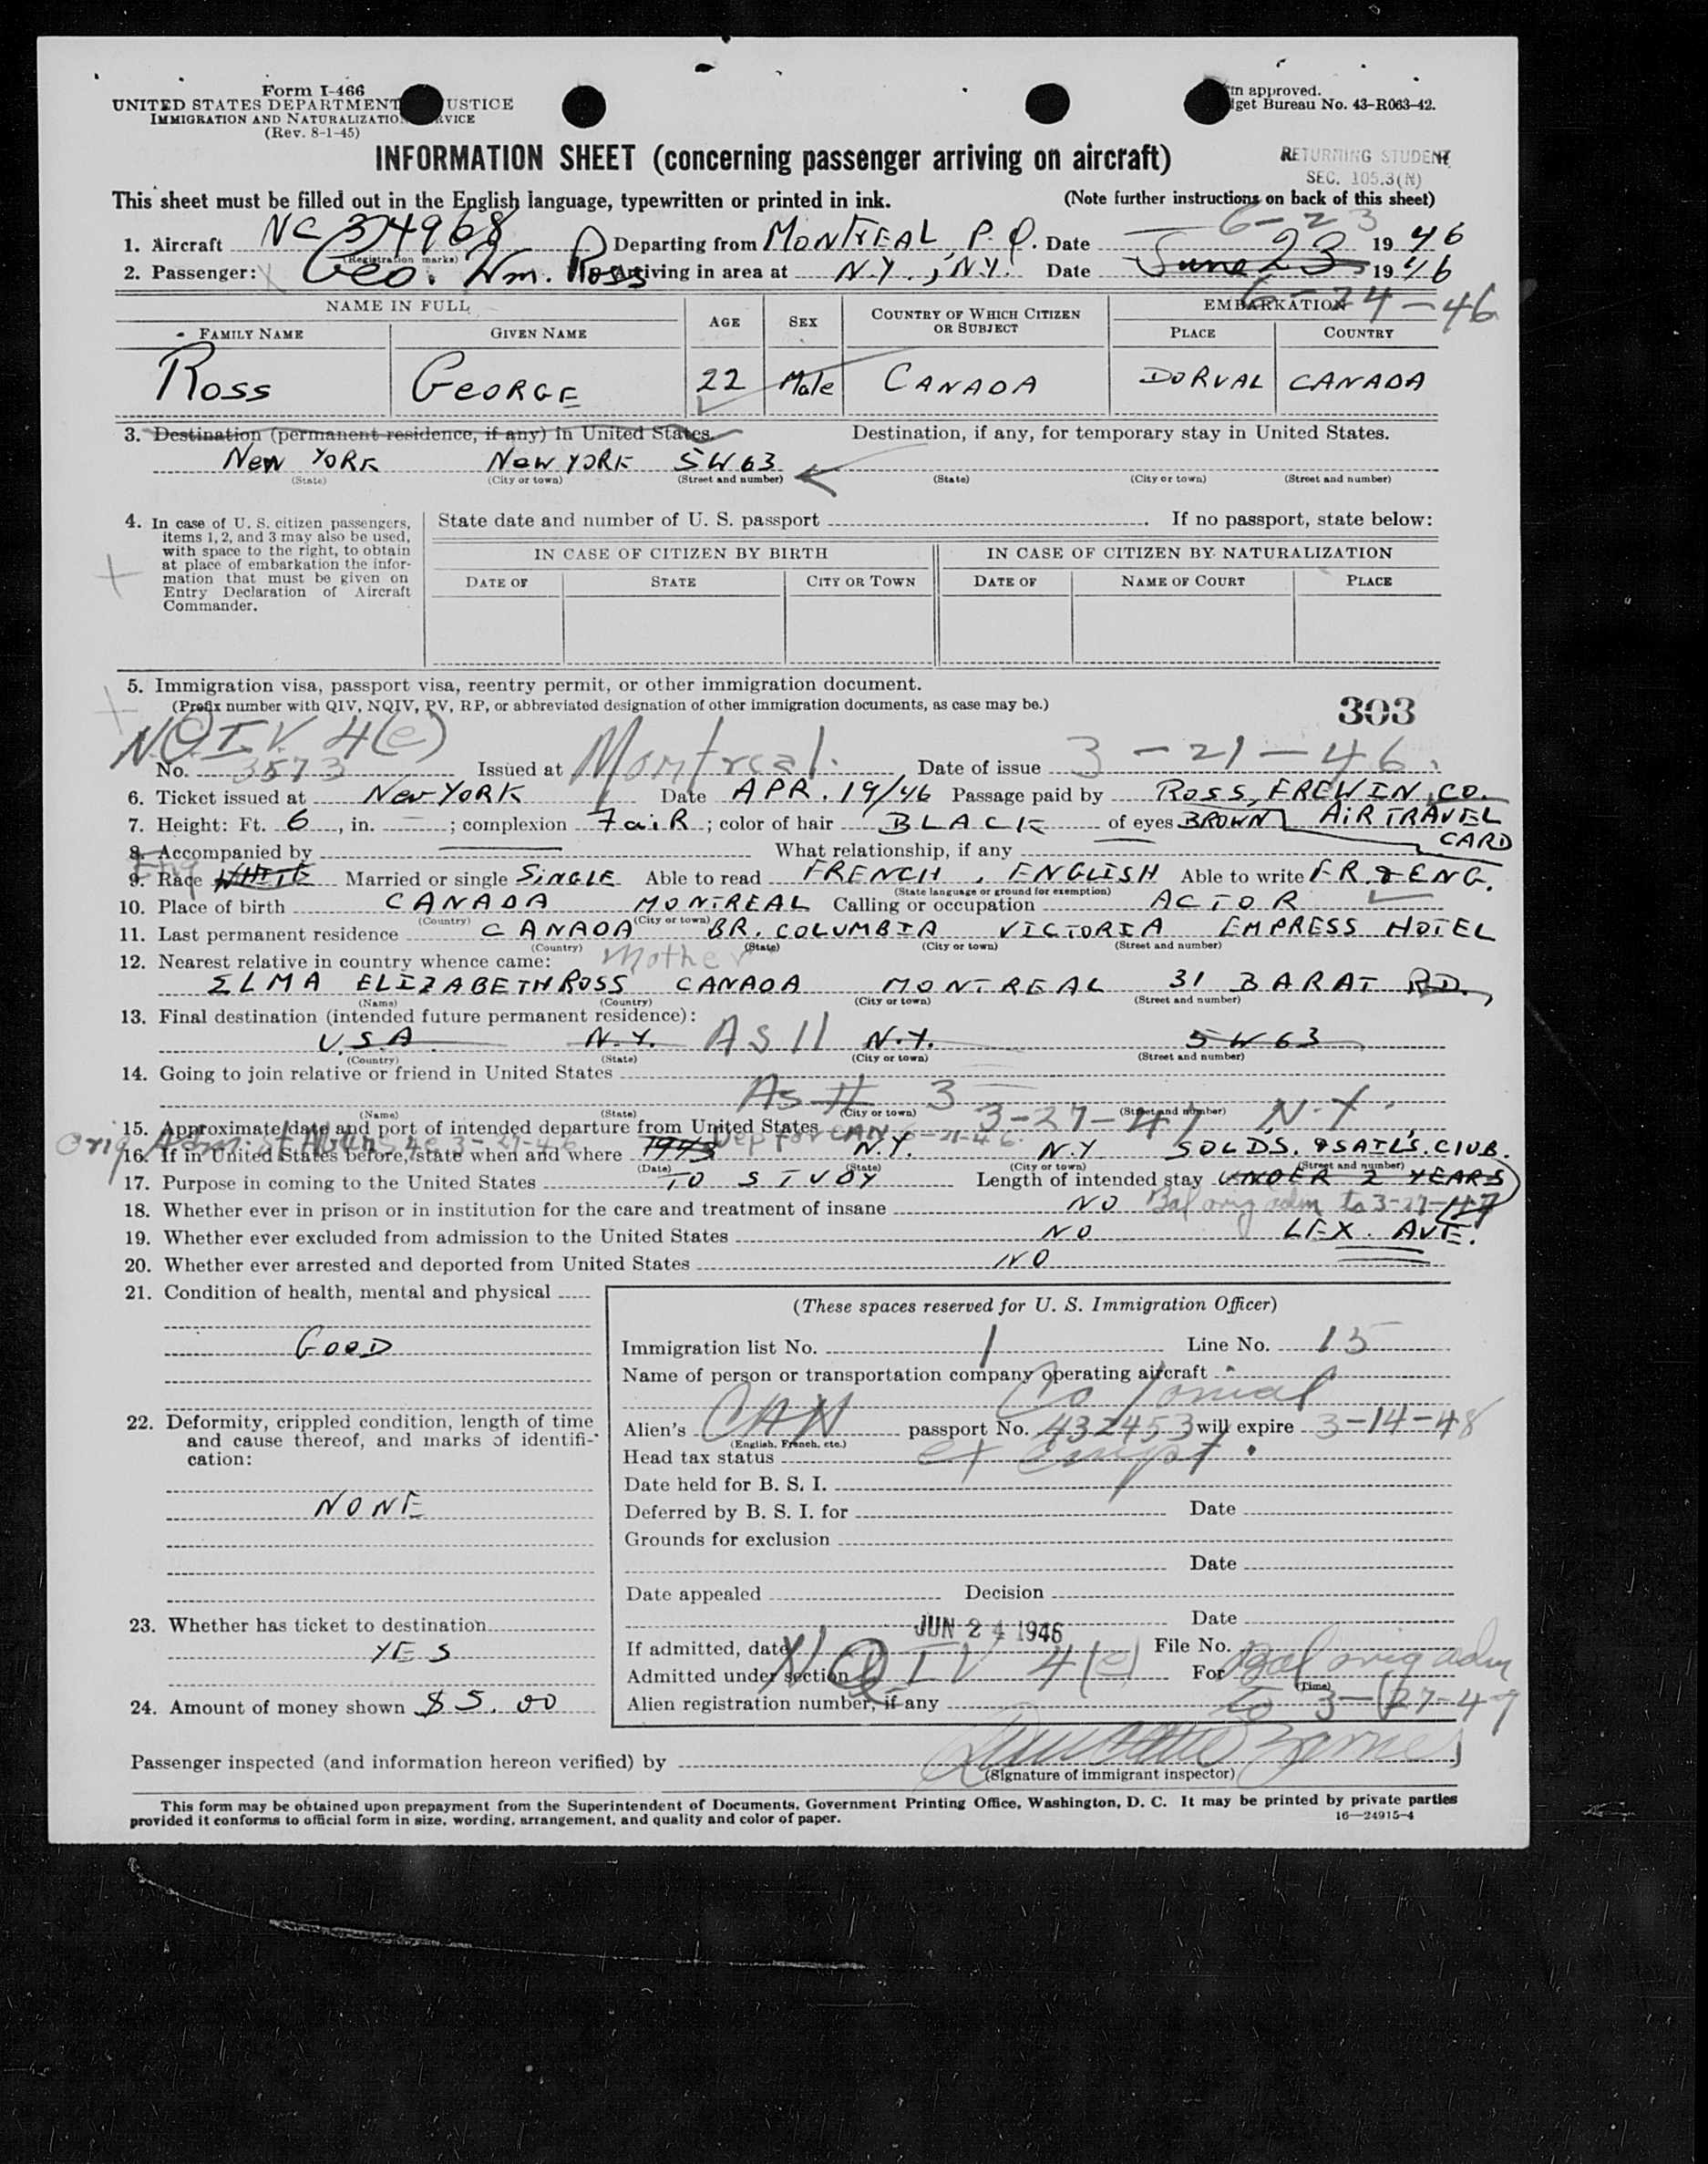 Form I-466
UNITED STATES DEPARTMENT USTICE
IMMIGRATION AND NATURALIZATIO RVICE
(Rev. 8-1-45)
rm approved.
dget Bureau No. 43-R063-42.
INFORMATION SHEET (concerning passenger arriving on aircraft)
RETURNING STUDENT
SEC. 105.3(N)
This sheet must be filled out in the English language, typewritten or printed in ink. (Note further instructions on back of this sheet)
6-23
1. Aircraft NC 34968 Departing from MONTREAL P.Q. Date June 23 1946
(Registration marks)
2. Passenger: Geo. Wm. Ross Arriving in area at N.Y., N.Y. Date June 23 1946
6-24-46
NAME IN FULL AGE SEX COUNTRY OF WHICH CITIZEN OR SUBJECT EMBARKATION
FAMILY NAME GIVEN NAME PLACE COUNTRY
ROSS GEORGE 22 Male CANADA DORVAL CANADA
3. Destination (permanent residence, if any) in United States. Destination, if any, for temporary stay in United States.
NEW YORK NEW YORK 5 W 63
(State) (City or town) (Street and number) (State) (City or town) (Street and number)
4. In case of U. S. citizen passengers, items 1, 2, and 3 may also be used, with space to the right, to obtain at place of embarkation the information that must be given on Entry Declaration of Aircraft Commander.
State date and number of U. S. passport . If no passport, state below:
IN CASE OF CITIZEN BY BIRTH IN CASE OF CITIZEN BY NATURALIZATION
DATE OF STATE CITY OR TOWN DATE OF NAME OF COURT PLACE
5. Immigration visa, passport visa, reentry permit, or other immigration document.
(Prefix number with QIV, NQIV, PV, RP, or abbreviated designation of other immigration documents, as case may be.)
303
NQIV 4(e)
No. 3573 Issued at Montreal. Date of issue 3-21-46.
6. Ticket issued at NEW YORK Date APR. 19/46 Passage paid by ROSS, FREWIN, CO.
7. Height: Ft. 6, in. ; complexion FAIR; color of hair BLACK of eyes BROWN AIR TRAVEL CARD
8. Accompanied by What relationship, if any
Eng
9. Race WHITE Married or single SINGLE Able to read FRENCH, ENGLISH Able to write FR. & ENG.
(State language or ground for exemption)
10. Place of birth CANADA MONTREAL Calling or occupation ACTOR
(Country) (City or town)
11. Last permanent residence CANADA BR. COLUMBIA VICTORIA EMPRESS HOTEL
(Country) (State) (City or town) (Street and number)
12. Nearest relative in country whence came: Mother
ELMA ELIZABETH ROSS CANADA MONTREAL 31 BARAT RD.,
(Name) (Country) (City or town) (Street and number)
13. Final destination (intended future permanent residence):
U.S.A. N.Y. As 11 N.Y. 5 W 63
(Country) (State) (City or town) (Street and number)
14. Going to join relative or friend in United States
As # 3
(Name) (State) (City or town) (Street and number)
15. Approximate date and port of intended departure from United States 3-27-47 N.Y.
Orig Adm. St Albans 3-27-46 Dep for CAN 6-21-46
16. If in United States before, state when and where 1943 N.Y. N.Y SOLDS. & SAIL'S. CLUB.
(Date) (State) (City or town) (Street and number)
17. Purpose in coming to the United States TO STUDY Length of intended stay UNDER 2 YEARS
18. Whether ever in prison or in institution for the care and treatment of insane NO Bal orig adm to 3-27-47
19. Whether ever excluded from admission to the United States NO LEX. AVE.
20. Whether ever arrested and deported from United States NO
21. Condition of health, mental and physical
GOOD
22. Deformity, crippled condition, length of time and cause thereof, and marks of identification:
NONE
23. Whether has ticket to destination
YES
24. Amount of money shown $5.00
(These spaces reserved for U. S. Immigration Officer)
Immigration list No. 1 Line No. 15
Name of person or transportation company operating aircraft
Colonial
Alien's CAN passport No. 432453 will expire 3-14-48
(English, French, etc.)
Head tax status exempt.
Date held for B. S. I.
Deferred by B. S. I. for Date
Grounds for exclusion
Date
Date appealed Decision
Date
If admitted, date JUN 24 1946 File No.
Admitted under section NQIV 4(e) For Bal orig adm
(Time)
Alien registration number, if any to 3-27-47
Passenger inspected (and information hereon verified) by
(Signature of immigrant inspector)
This form may be obtained upon prepayment from the Superintendent of Documents, Government Printing Office, Washington, D. C. It may be printed by private parties
provided it conforms to official form in size, wording, arrangement, and quality and color of paper. 16—24915-4